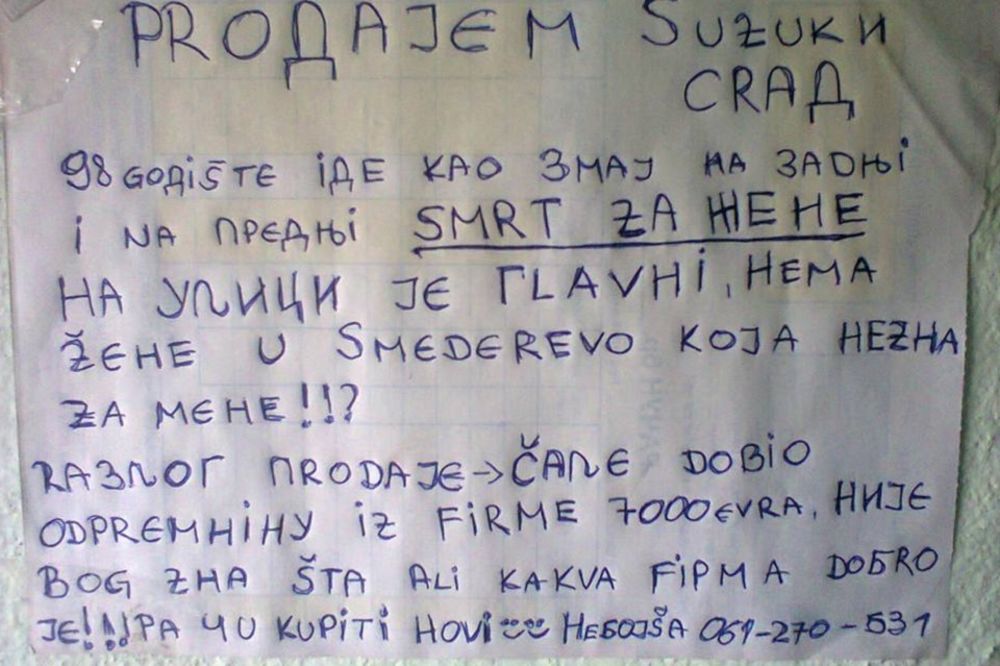 PRОДАЈЕМ SUZUKИ
CRAД
98 GOДIŠTE IДЕ KAO ЗМАЈ НА ЗАДЊI
I NA ПРЕДЊI SMRT ZA ЖЕНЕ
НА УЛИЦИ ЈЕ ГLAVHI, НЕМА
ŽЕНЕ U SMEDEREVO КОЈА НЕZHA
ZA МЕНЕ!!?
RАЗЛОГ ПRODAJE→ČАЛЕ DOBIO
ODPREMHIHУ IZ FIRME 7000 EVRA, НИЈЕ
BOG ZHA ŠTA ALI KAKVA FIРМА DOБRO
JE!!!! PA ЧU KUPITI HOVI НЕБОJŠA 061-270-531